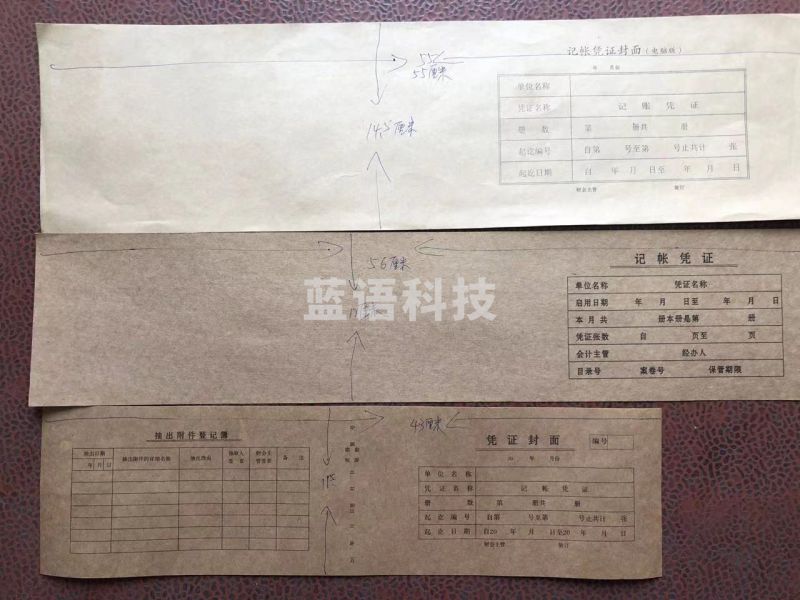 记帐凭证封面（电脑版）
年 月份
55厘米
单位名称
凭证名称 记 账 凭 证
册 数 第 册共 册
14.5厘米
起讫编号 自第 号至第 号止共计 张
起讫日期 自 年 月 日至 年 月 日
财会主管 装订
记 帐 凭 证
56厘米
单位名称 凭证名称
启用日期 年 月 日至 年 月 日
蓝语科技
本月共 册本册是第 册
凭证张数 自 页至 页
会计主管 经办人
目录号 案卷号 保管期限
43厘米
抽出附件登记簿
抽出日期 年 月 日 抽出附件的详细名称 抽出理由 抽取人签章 财会主管签章 备注
凭 证 封 面 编号
20 年 月份
单 位 名 称
凭 证 名 称 记 帐 凭 证
册 数 第 册共 册
起 讫 编 号 自第 号至第 号止共计 张
起 讫 日 期 自20 年 月 日至20 年 月 日
财会主管 装订